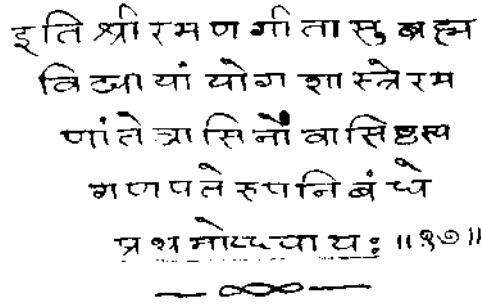 इति श्रीरमणगीतासु ब्रह्म
विद्यायां योगशास्त्रे रम
णांतेवासिनो वासिष्ठस्य
गणपतेरुपनिबंधे
प्रथमोध्यायः ॥१७॥